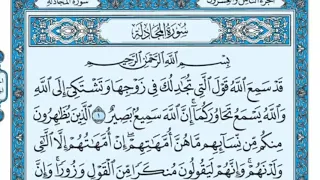 سُورَةُ المُجَادلَةِ الجُزءُ الثَّامِنُ وَالعِشرُونَ
سُورَةُ المُجَادلَةِ
بِسْمِ ٱللَّهِ ٱلرَّحْمَٰنِ ٱلرَّحِيمِ
قَدْ سَمِعَ ٱللَّهُ قَوْلَ ٱلَّتِي تُجَٰدِلُكَ فِي زَوْجِهَا وَتَشْتَكِيٓ إِلَى ٱللَّهِ
وَٱللَّهُ يَسْمَعُ تَحَاوُرَكُمَآ إِنَّ ٱللَّهَ سَمِيعٌۢ بَصِيرٌ ١ ٱلَّذِينَ يُظَٰهِرُونَ
مِنكُم مِّن نِّسَآئِهِم مَّا هُنَّ أُمَّهَٰتِهِمْ إِنْ أُمَّهَٰتُهُمْ إِلَّا ٱلَّٰٓـِٔي
وَلَدْنَهُمْ وَإِنَّهُمْ لَيَقُولُونَ مُنكَرًا مِّنَ ٱلْقَوْلِ وَزُورًا وَإِنَّ